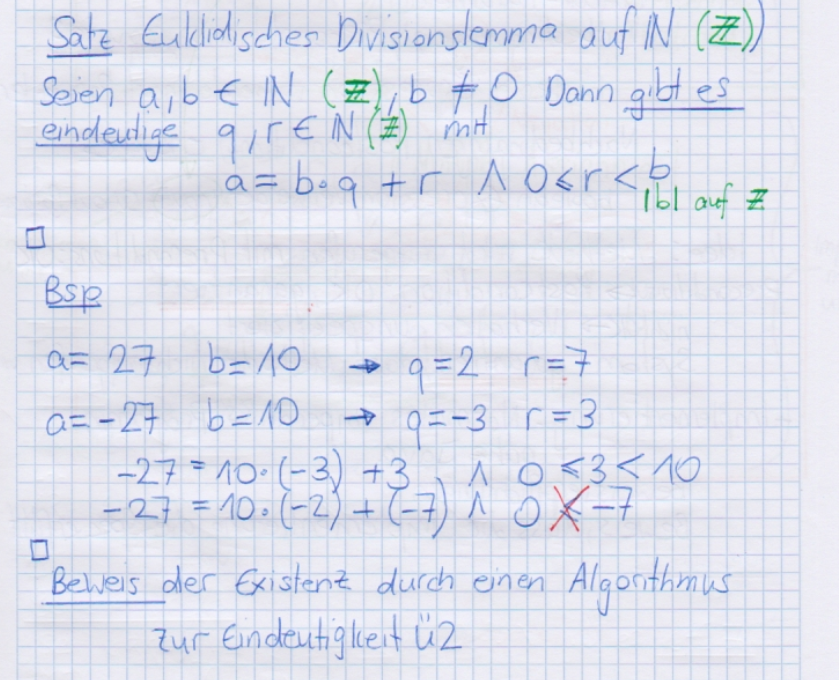 Satz Euklidisches Divisionslemma auf ℕ (ℤ)
Seien a,b ∈ ℕ (ℤ), b ≠ 0 Dann gibt es
eindeutige q,r ∈ ℕ (ℤ) mit
a = b·q + r ∧ 0 ≤ r < b
|b| auf ℤ
Bsp
a = 27 b = 10 → q = 2 r = 7
a = -27 b = 10 → q = -3 r = 3
-27 = 10·(-3) + 3 ∧ 0 ≤ 3 < 10
-27 = 10·(-2) + (-7) ∧ 0 ≤ -7
Beweis der Existenz durch einen Algorithmus
zur Eindeutigkeit Ü2